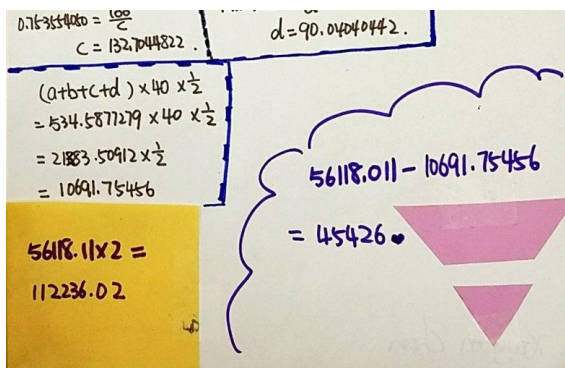 0.753554060 = 100/C
C = 132.7044822 .
d=90.04040442 .
(a+b+c+d) × 40 × 1/2
= 534.5877279 × 40 × 1/2
= 21383.50912 × 1/2
= 10691.75456
56118.11×2 =
112236.02
56118.011 - 10691.75456
= 45426.